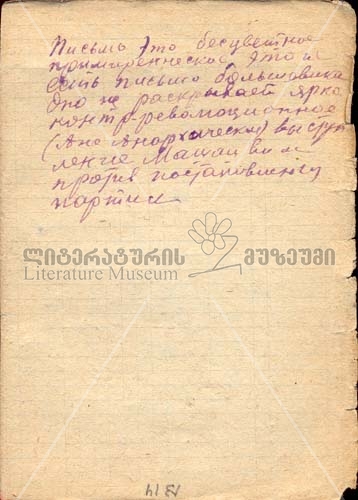 Письмо это бесцветное
примиренческое, это не
есть письмо большевика
Оно не раскрывает ярко
контрреволюционное
(а не анархическое) выступ
ление
против постановления
партии
ლიტერატურის მუზეუმი
Literature Museum